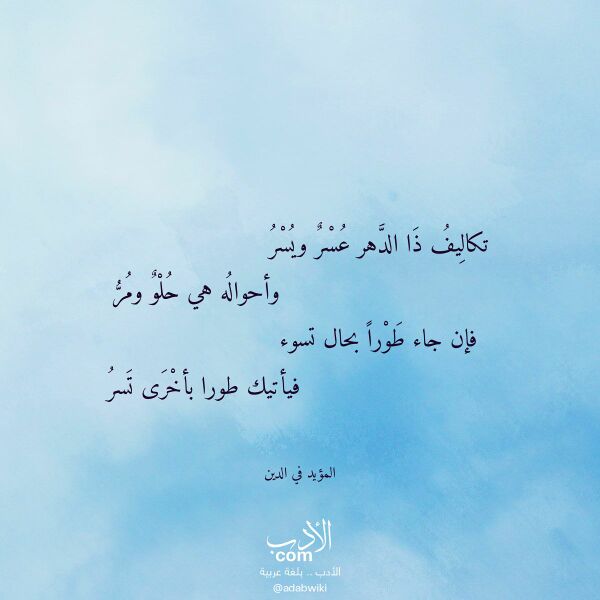 تكالِيفُ ذَا الدَّهر عُسْرٌ ويُسْرُ
وأحوالُه هي حُلْوٌ ومُرُّ
فإن جاء طَوْراً بحال تسوء
فيأتيك طورا بأخْرَى تَسرُ
المؤيد في الدين
الأدب
com
الأدب .. بلغة عربية
@adabwiki